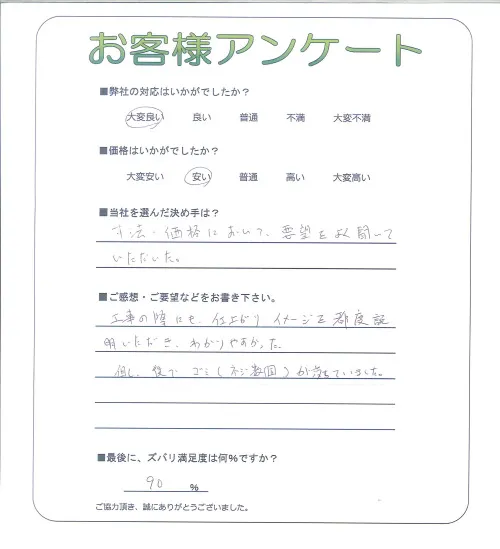 お客様アンケート
■弊社の対応はいかがでしたか？
大変良い 良い 普通 不満 大変不満
■価格はいかがでしたか？
大変安い 安い 普通 高い 大変高い
■当社を選んだ決め手は？
寸法・価格において、要望をよく聞いて
いただいた。
■ご感想・ご要望などをお書き下さい。
工事の際にも、仕上がりイメージを都度説
明いただき、わかりやすかった。
但し、後で ゴミ(ネジ数回)が落ちていました。
■最後に、ズバリ満足度は何%ですか？
90 %
ご協力頂き、誠にありがとうございました。